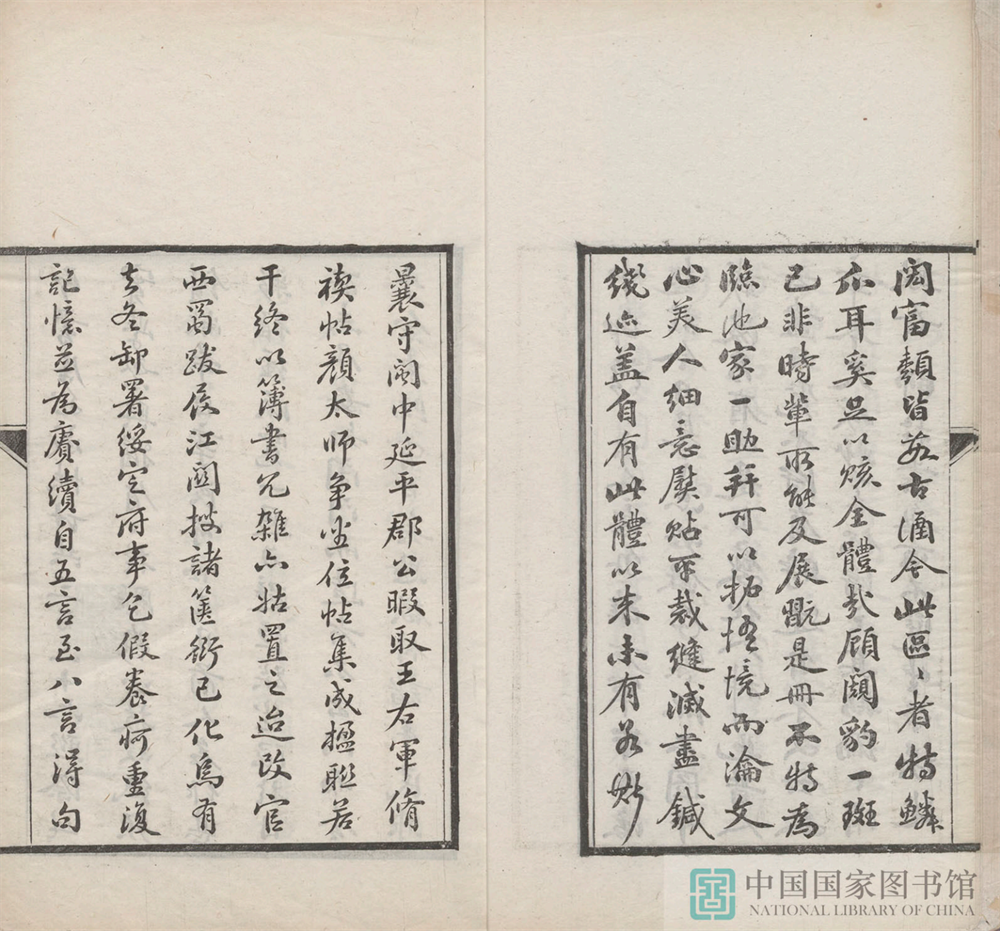 闳富類皆教古涵今此區〻者特鱗
爪耳奚足以賅全體哉顧闚豹一斑
已非時輩所能及展翫是冊不特為
臨池家一助并可以拓悟境而瀹文
心美人細意熨貼平裁縫滅盡鍼
綫迹盖自有此體以来未有若斯
曩守閩中延平郡公暇取王右軍脩
禊帖顏太師争坐位帖集成楹聯若
干終以簿書冗雜亦姑置之迨改官
西蜀跋履江關搜諸篋衍已化烏有
去冬卸署綏定府事乞假養疴重復
記憶並為賡續自五言至八言得句
中国国家图书馆
NATIONAL LIBRARY OF CHINA